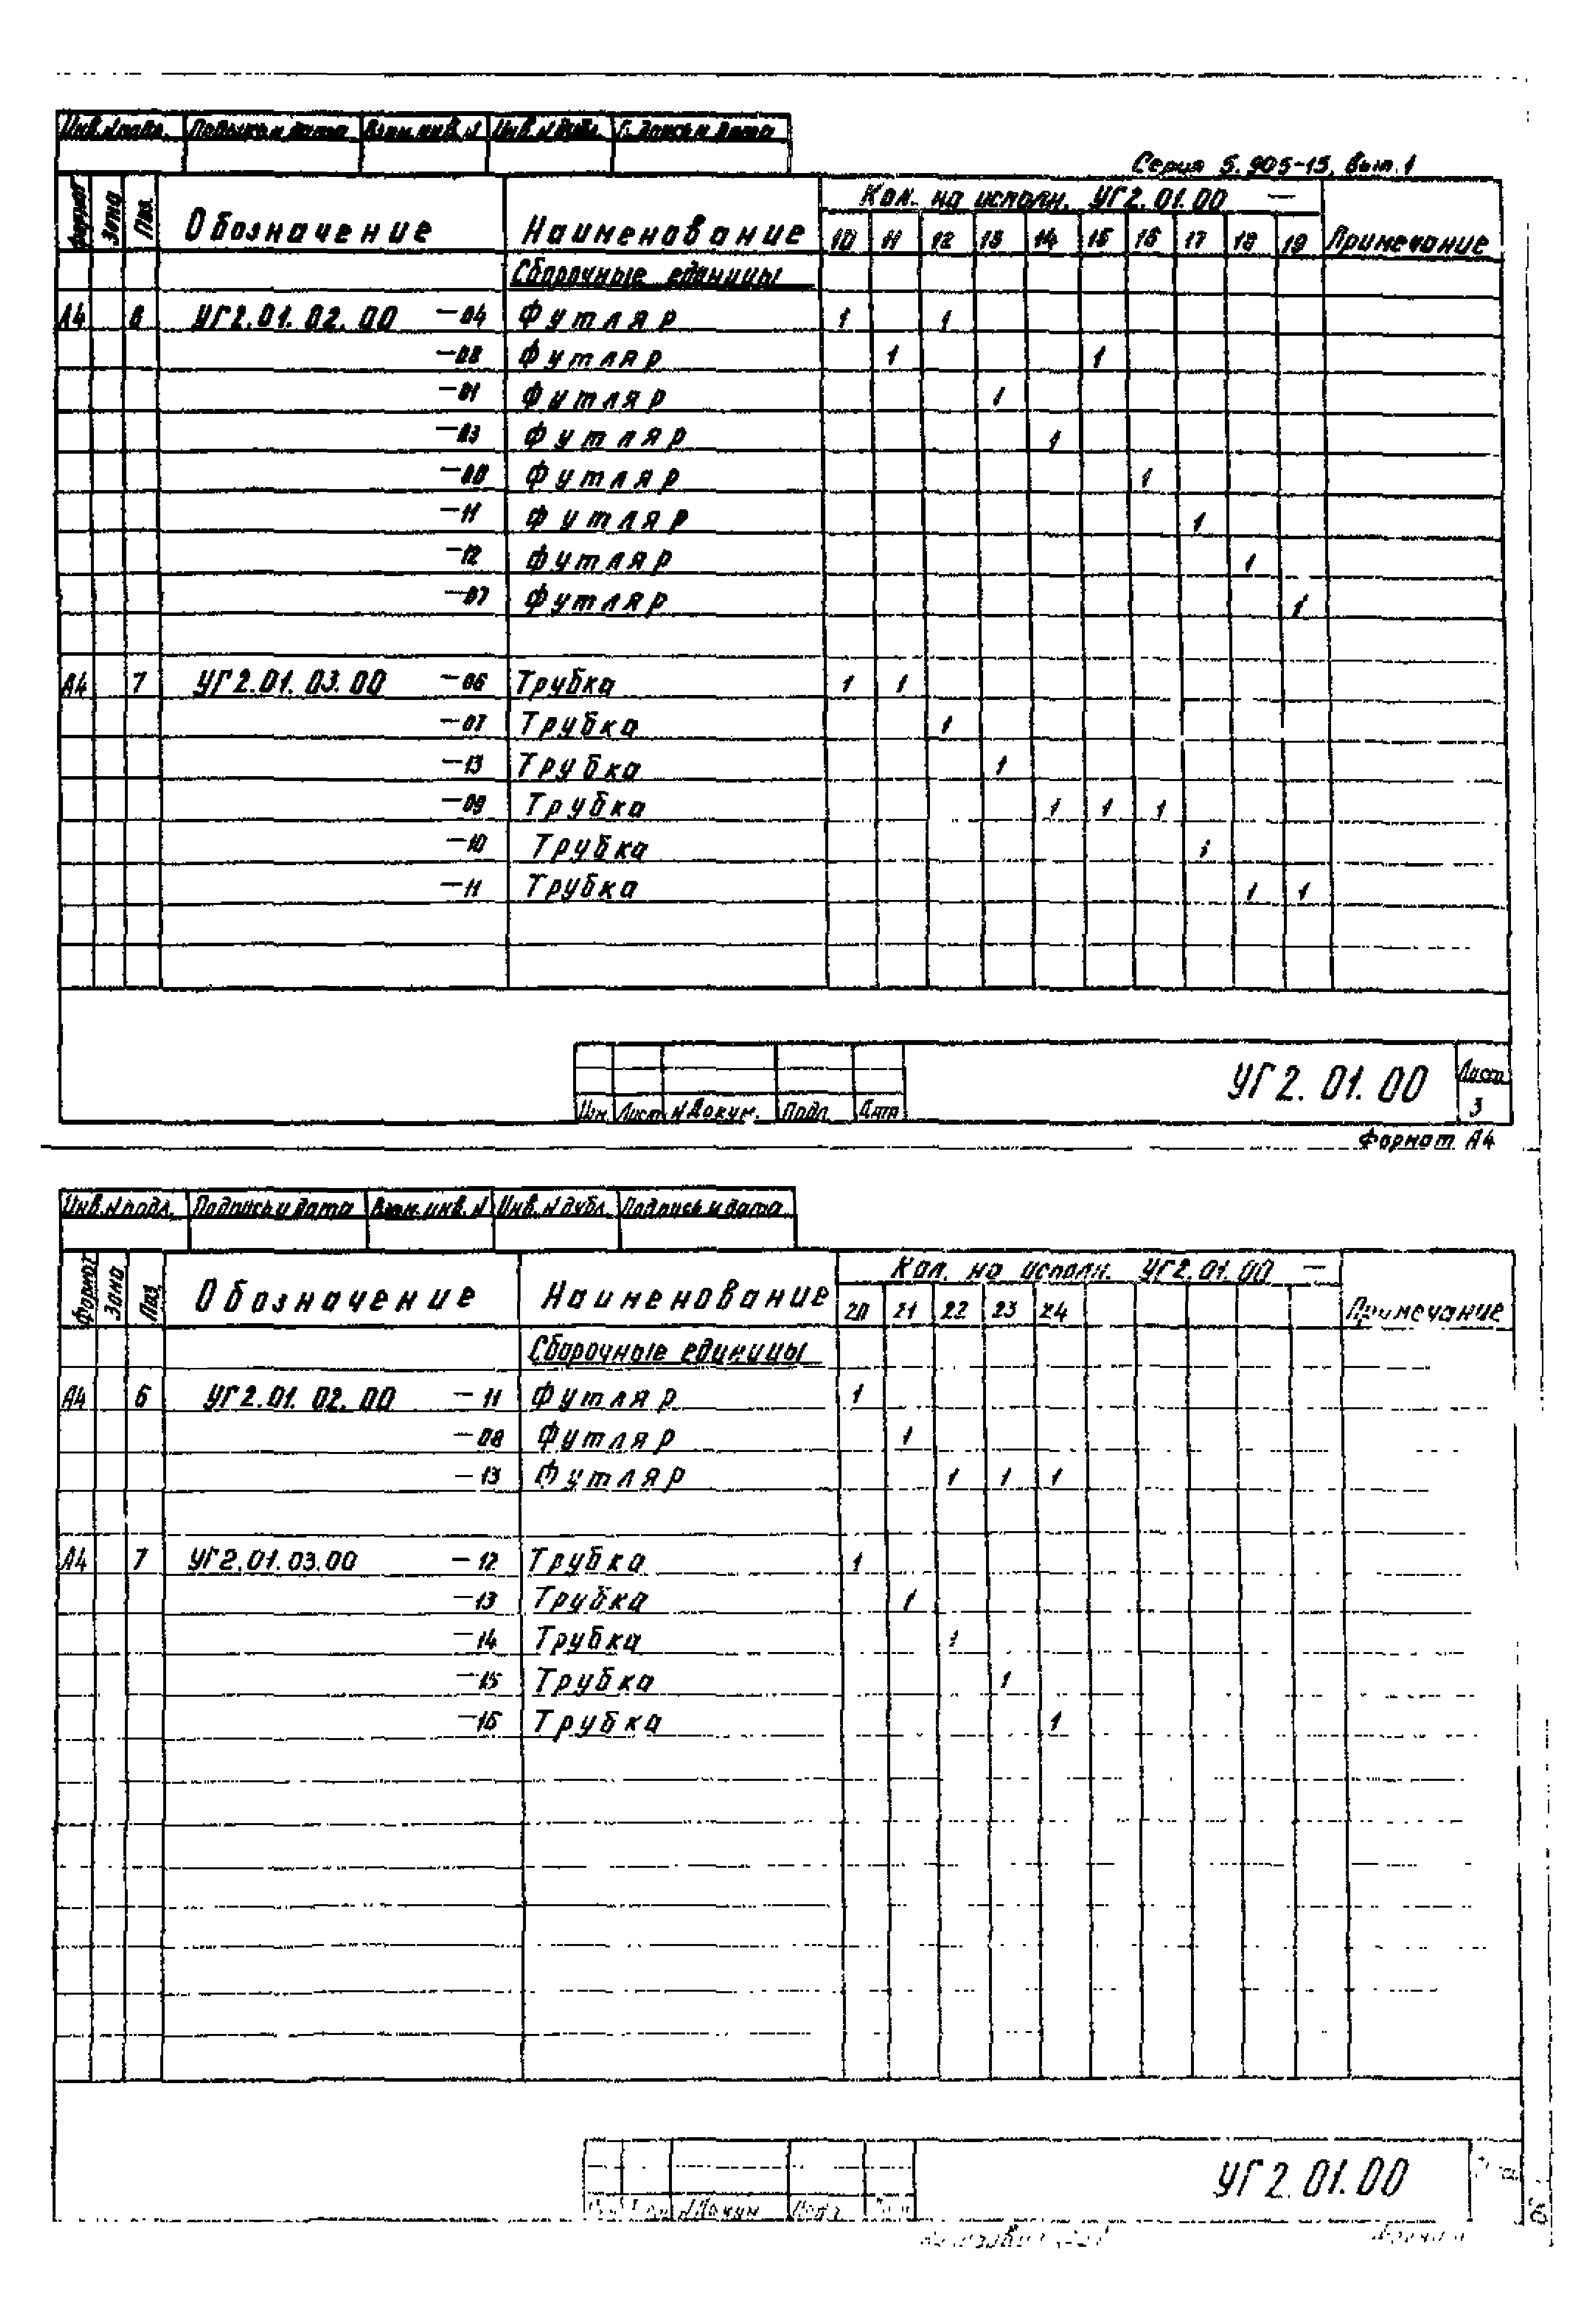 Инв.N подл. Подпись и дата Взам.инв.N Инв.N дубл. Подпись и дата
Серия 5.905-15, вып.1
Формат Зона Поз. Обозначение Наименование Кол. на исполн. УГ2.01.00 — Примечание
10 11 12 13 14 15 16 17 18 19
Сборочные единицы
А4 6 УГ2.01.02.00 —04 Футляр 1 1
—08 Футляр 1 1
—01 Футляр 1
—03 Футляр 1
Футляр 1
—11 Футляр 1
—12 Футляр 1
—07 Футляр 1
А4 7 УГ2.01.03.00 —06 Трубка 1 1
—07 Трубка 1
—13 Трубка 1
—09 Трубка 1 1 1
—10 Трубка 1
—11 Трубка 1 1
УГ2.01.00 Лист
Изм Лист N Докум. Подп. Дата 3
Формат А4
Инв.N подл. Подпись и дата Взам.инв.N Инв.N дубл. Подпись и дата
Формат Зона Поз. Обозначение Наименование Кол. на исполн. УГ2.01.00 — Примечание
20 21 22 23 24
Сборочные единицы
А4 6 УГ2.01.02.00 —11 Футляр 1
—08 Футляр 1
—13 Футляр 1 1 1
А4 7 УГ2.01.03.00 —12 Трубка 1
—13 Трубка 1
—14 Трубка 1
—15 Трубка 1
—16 Трубка 1
УГ2.01.00
N Докум.